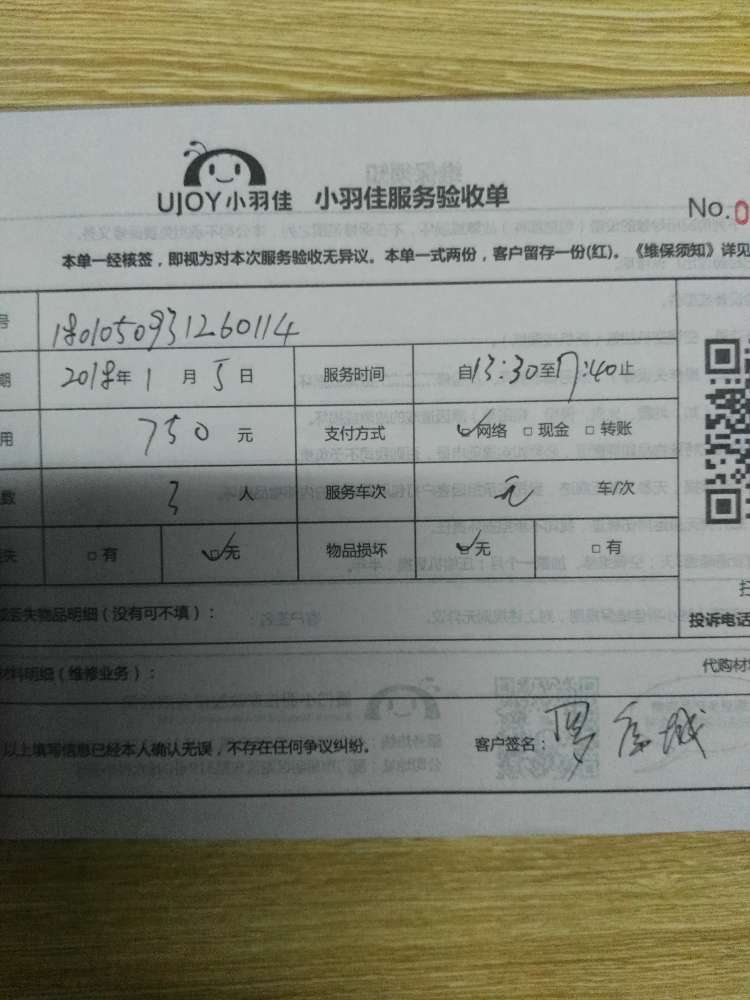 UJOY小羽佳 小羽佳服务验收单
No.0
本单一经核签，即视为对本次服务验收无异议。本单一式两份，客户留存一份(红)。《维保须知》详见
号 1801050931260114
期 2018年1月5日 服务时间 自13:30至17:40止
用 750元 支付方式 ☑网络 □现金 □转账
数 3人 服务车次 无 车/次
失 □有 ☑无 物品损坏 ☑无 □有
或丢失物品明细（没有可不填）：
投诉电话
材料明细（维修业务）： 代购材
以上填写信息已经本人确认无误，不存在任何争议纠纷。 客户签名：